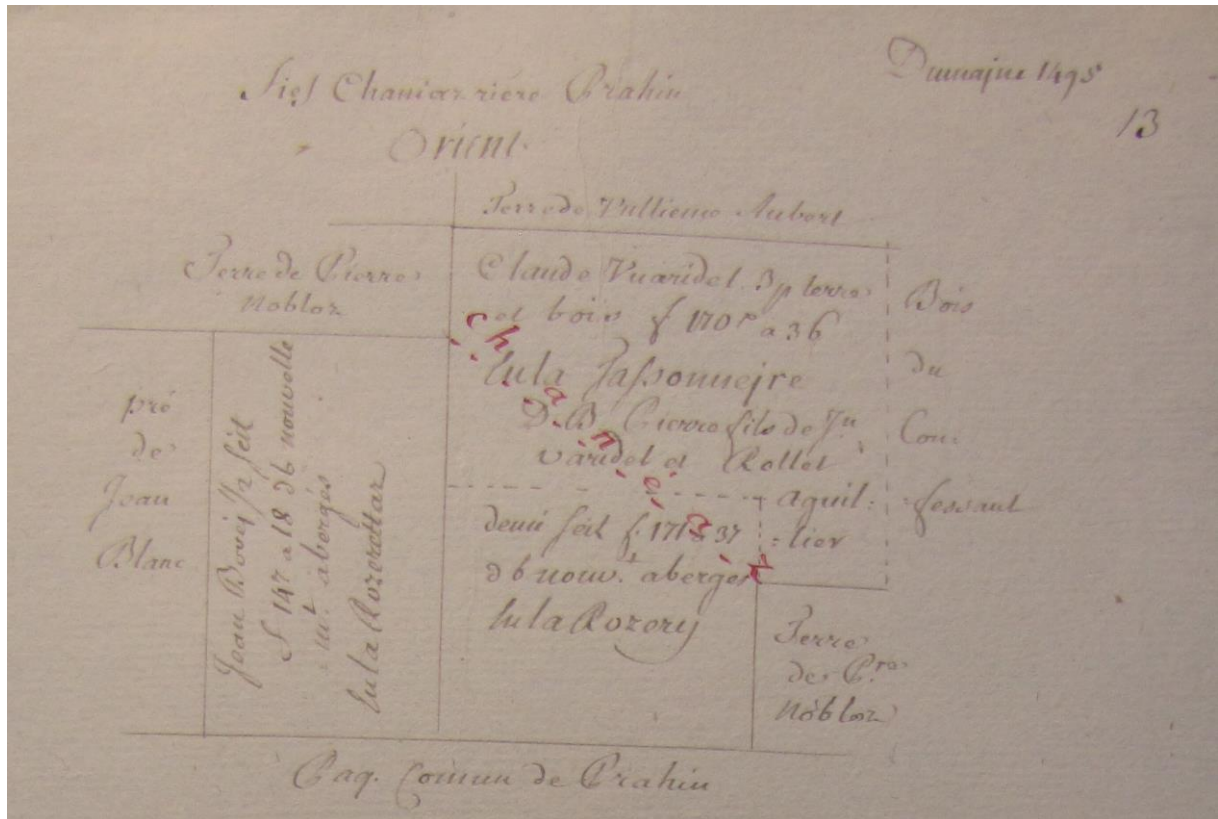 Dumajne 1495
13
Fief Chaniarriere Prahin
Orient
Terre de Vullieme Aubert
Terre de Pierre
Nobloz
Claude Vuaridel 3p terre
et bois f 170 a 36
En la Fassonnejre
D. B. Pierre fils de Jn
varidel et Rollet
aquil=
=lier
Bois
du
Con=
=fessant
pré
de
Jean
Blanc
Jean Bovei 1/2 seit
f 147 a 18 d6 nouvelle
=mt. abergés
En la Rozerettaz
demi seit f. 171 a 37
d6 nouv.t abergés
En la Rozery
Terre
de Pre
Nobloz
Paq. Comun de Prahin